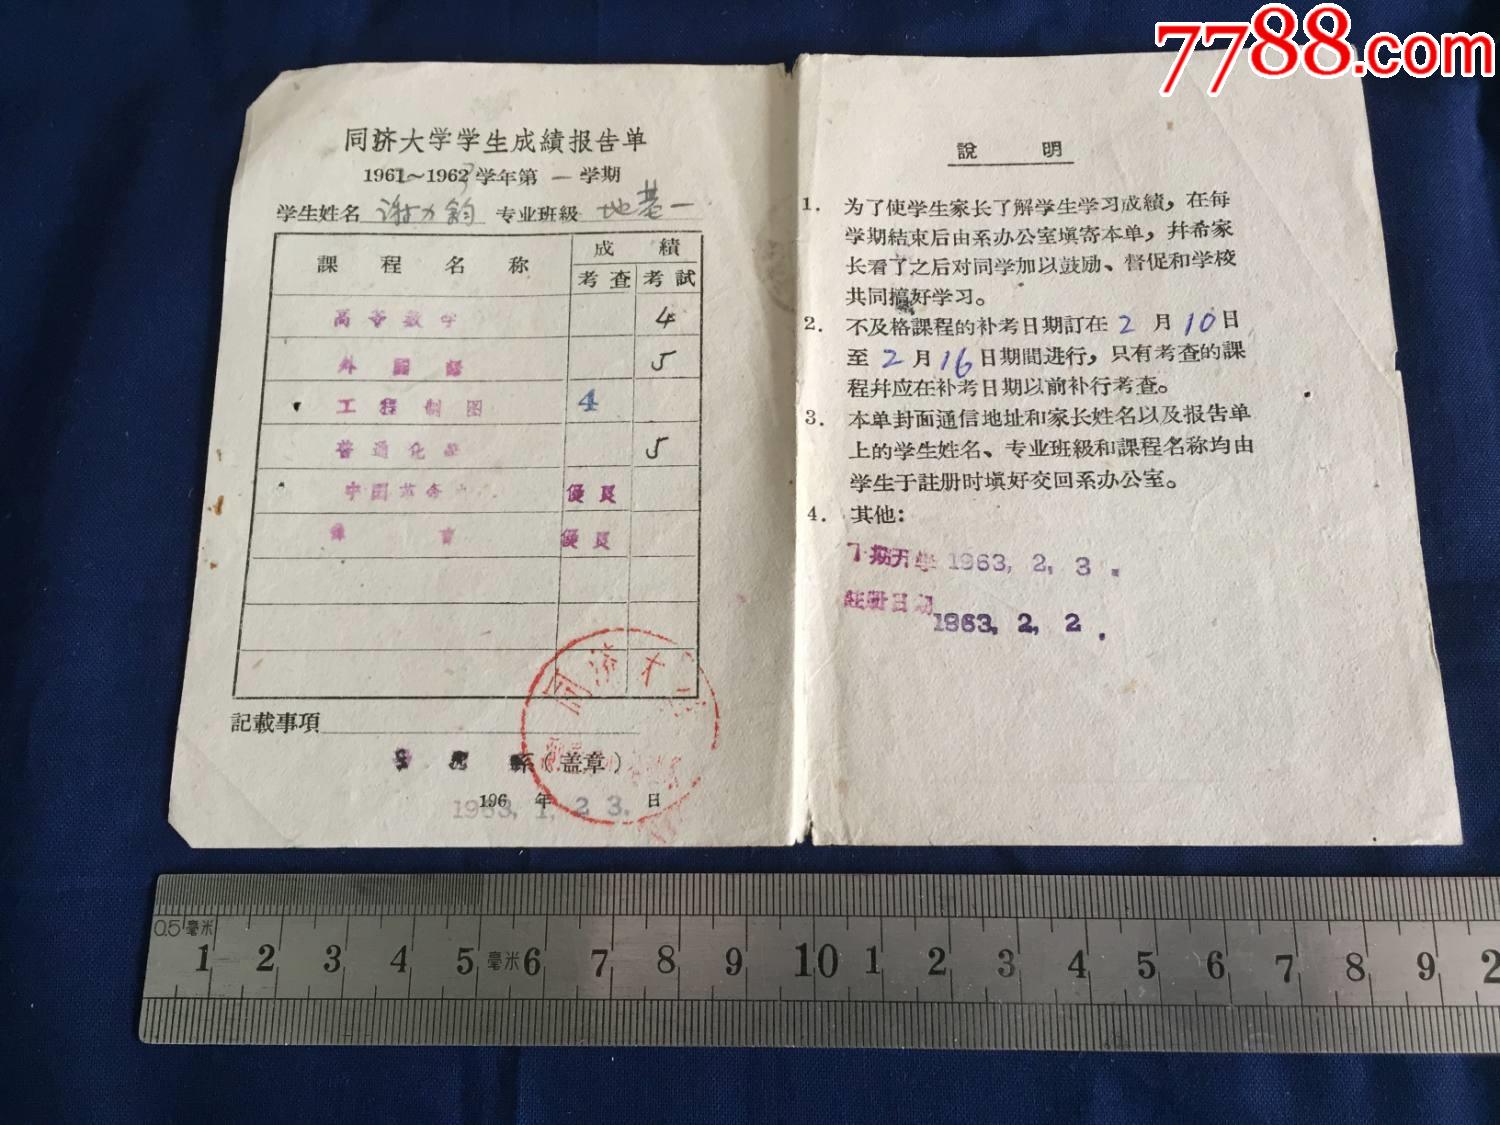 7788.com
同济大学学生成績报告单
1962～1963学年第一学期
学生姓名 谢力鈞 专业班級 地基一
課程名称 成績
考查 考試
高等数学 4
外国語 5
工程制图 4
普通化学 5
中国革命史 優良
体育 優良
記載事項
系(盖章)
1963. 1. 23. 196 年 日
同济大
說明
1. 为了使学生家长了解学生学习成績，在每
学期結束后由系办公室填寄本单，幷希家
长看了之后对同学加以鼓励、督促和学校
共同搞好学习。
2. 不及格課程的补考日期訂在2月10日
至2月16日期間进行，只有考查的課
程幷应在补考日期以前补行考查。
3. 本单封面通信地址和家长姓名以及报告单
上的学生姓名、专业班級和課程名称均由
学生于註册时填好交回系办公室。
4. 其他：
下期开学 1963. 2. 3.
註册日期 1963. 2. 2.
0.5毫米
1 2 3 4 5 毫米 6 7 8 9 10 1 2 3 4 5 6 7 8 9 2